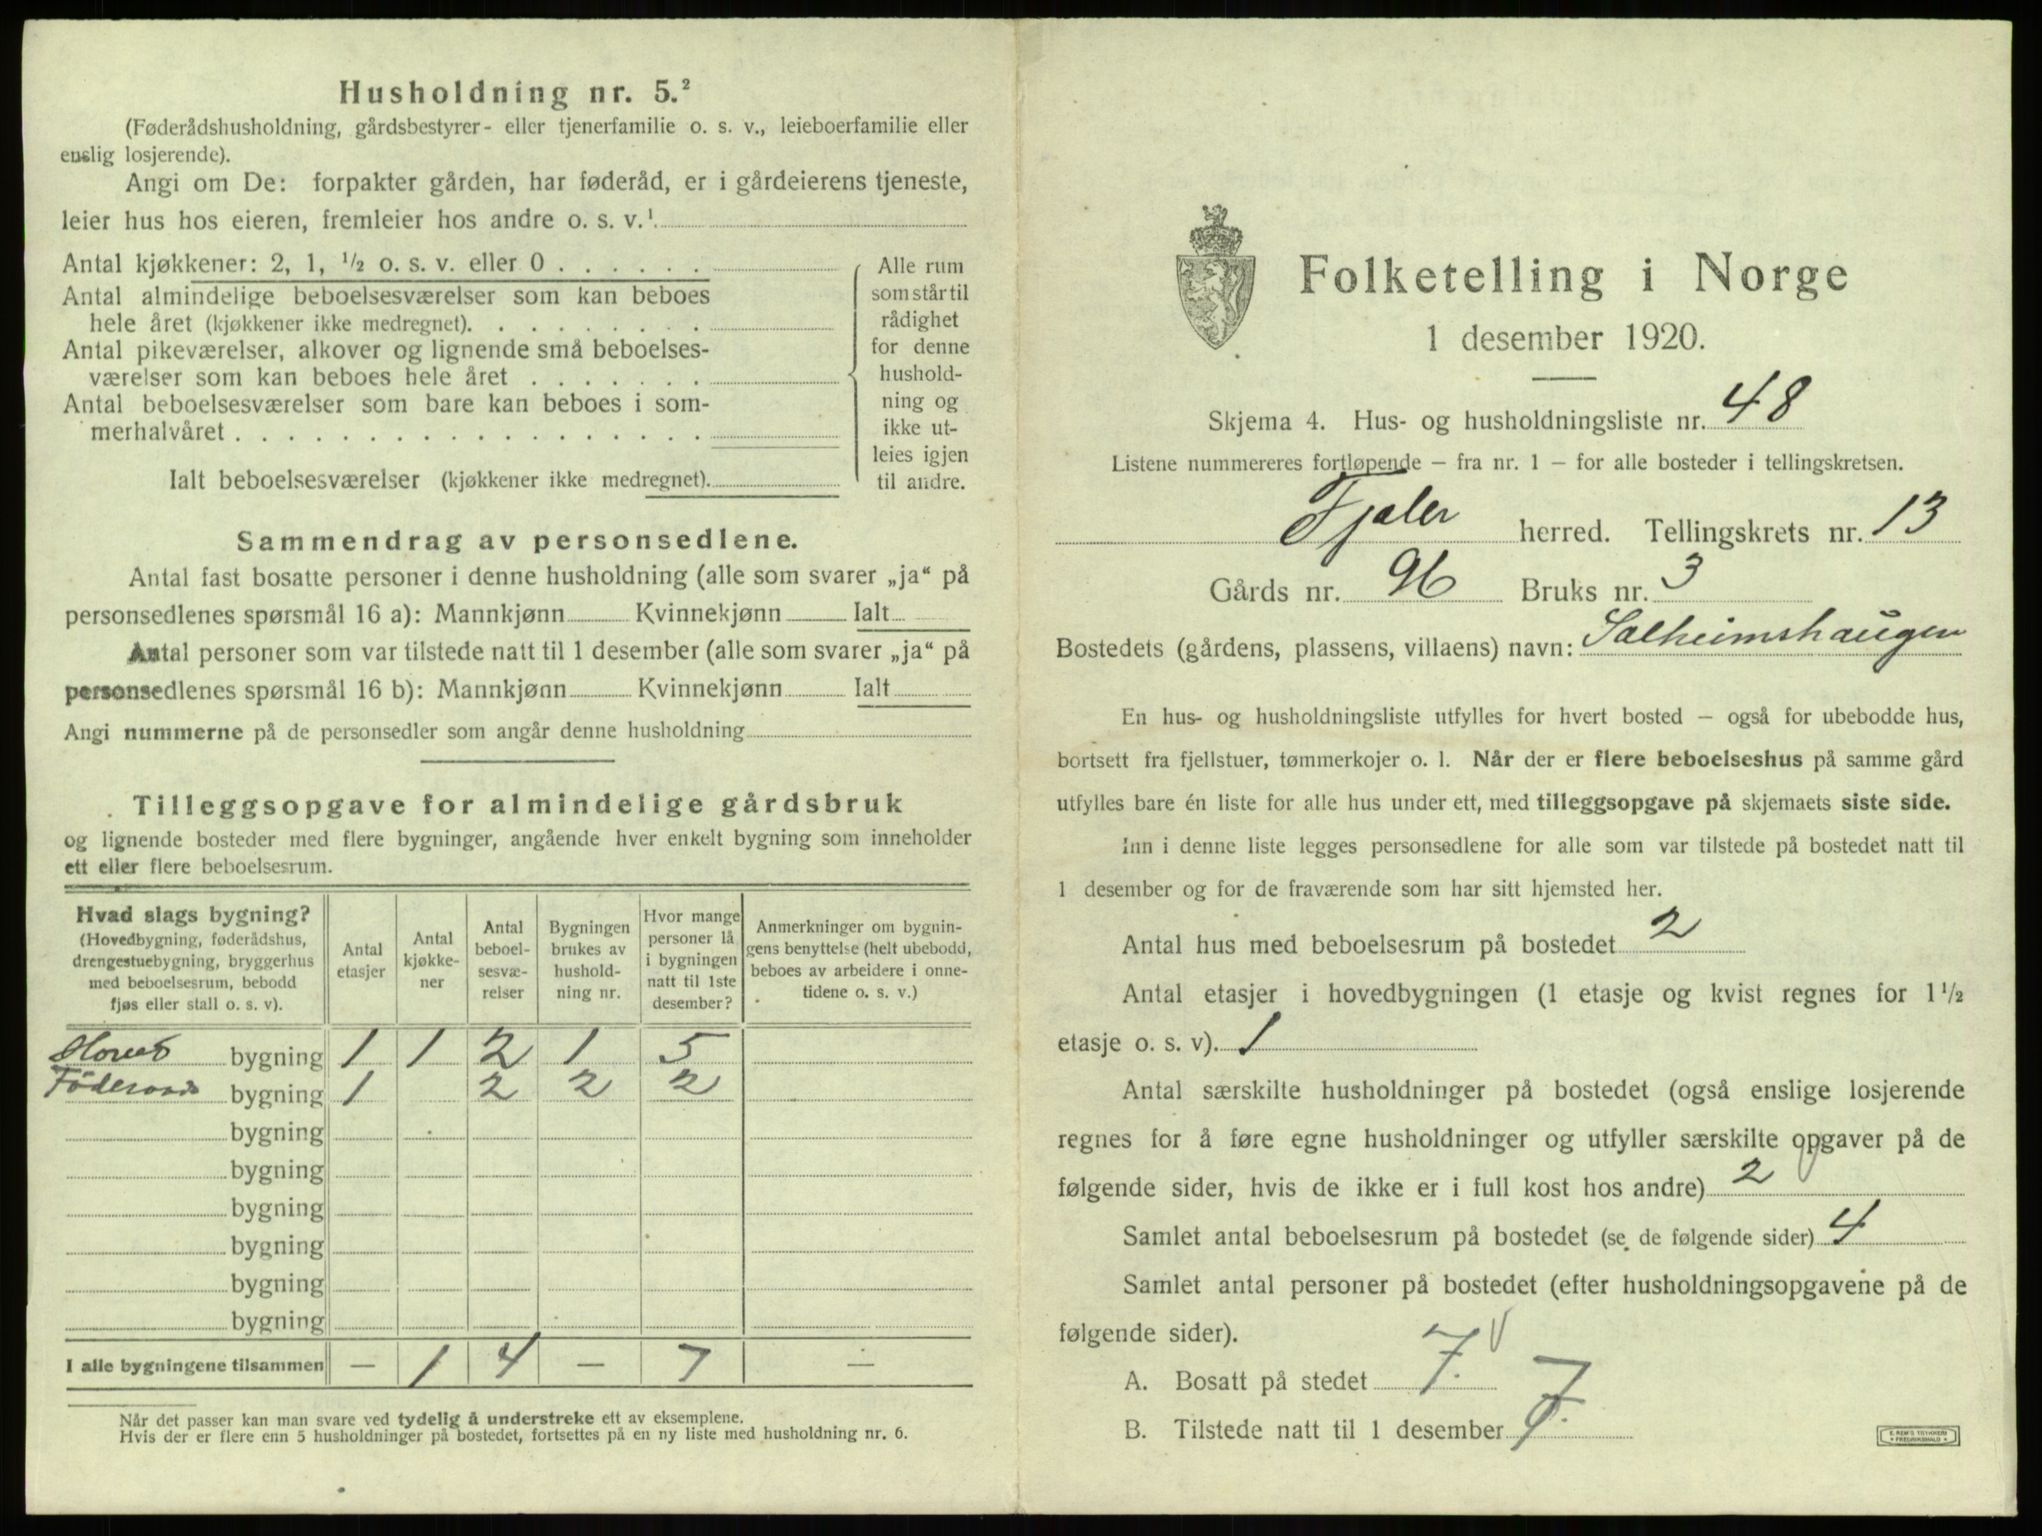 Husholdning nr. 5.²
(Føderådshusholdning, gårdsbestyrer- eller tjenerfamilie o. s. v., leieboerfamilie eller
enslig losjerende).
Angi om De: forpakter gården, har føderåd, er i gårdeierens tjeneste,
leier hus hos eieren, fremleier hos andre o. s. v.¹
Antal kjøkkener: 2, 1, ½ o. s. v. eller 0
Antal almindelige beboelsesværelser som kan beboes
hele året (kjøkkener ikke medregnet).
Antal pikeværelser, alkover og lignende små beboelses-
værelser som kan beboes hele året
Antal beboelsesværelser som bare kan beboes i som-
merhalvåret
Ialt beboelsesværelser (kjøkkener ikke medregnet).
Alle rum
som står til
rådighet
for denne
hushold-
ning og
ikke ut-
leies igjen
til andre.
Sammendrag av personsedlene.
Antal fast bosatte personer i denne husholdning (alle som svarer „ja“ på
personsedlenes spørsmål 16 a): Mannkjønn Kvinnekjønn Ialt
Antal personer som var tilstede natt til 1 desember (alle som svarer „ja“ på
personsedlenes spørsmål 16 b): Mannkjønn Kvinnekjønn Ialt
Angi nummerne på de personsedler som angår denne husholdning
Tilleggsopgave for almindelige gårdsbruk
og lignende bosteder med flere bygninger, angående hver enkelt bygning som inneholder
ett eller flere beboelsesrum.
Hvad slags bygning?
(Hovedbygning, føderådshus,
drengestuebygning, bryggerhus
med beboelsesrum, bebodd
fjøs eller stall o. s. v).
Antal
etasjer
Antal
kjøkke-
ner
Antal
beboel-
sesvæ-
relser
Bygningen
brukes av
hushold-
ning nr.
Hvor mange
personer lå
i bygningen
natt til 1ste
desember?
Anmerkninger om bygnin-
gens benyttelse (helt ubebodd,
beboes av arbeidere i onne-
tidene o. s. v.)
Hoved bygning 1 1 2 1 5
Føderaads bygning 1 2 2 2
bygning
bygning
bygning
bygning
bygning
bygning
I alle bygningene tilsammen — 1 4 — 7 —
Når det passer kan man svare ved tydelig å understreke ett av eksemplene.
Hvis der er flere enn 5 husholdninger på bostedet, fortsettes på en ny liste med husholdning nr. 6.
Folketelling i Norge
1 desember 1920.
Skjema 4. Hus- og husholdningsliste nr. 48
Listene nummereres fortløpende – fra nr. 1 – for alle bosteder i tellingskretsen.
Fjaler herred. Tellingskrets nr. 13
Gårds nr. 96 Bruks nr. 3
Bostedets (gårdens, plassens, villaens) navn: Salheimshaugen
En hus- og husholdningsliste utfylles for hvert bosted – også for ubebodde hus,
bortsett fra fjellstuer, tømmerkojer o. l. Når der er flere beboelseshus på samme gård
utfylles bare én liste for alle hus under ett, med tilleggsopgave på skjemaets siste side.
Inn i denne liste legges personsedlene for alle som var tilstede på bostedet natt til
1 desember og for de fraværende som har sitt hjemsted her.
Antal hus med beboelsesrum på bostedet 2
Antal etasjer i hovedbygningen (1 etasje og kvist regnes for 1½
etasje o. s. v). 1
Antal særskilte husholdninger på bostedet (også enslige losjerende
regnes for å føre egne husholdninger og utfyller særskilte opgaver på de
følgende sider, hvis de ikke er i full kost hos andre) 2
Samlet antal beboelsesrum på bostedet (se de følgende sider) 4
Samlet antal personer på bostedet (efter husholdningsopgavene på de
følgende sider).
A. Bosatt på stedet 7.
B. Tilstede natt til 1 desember 7.